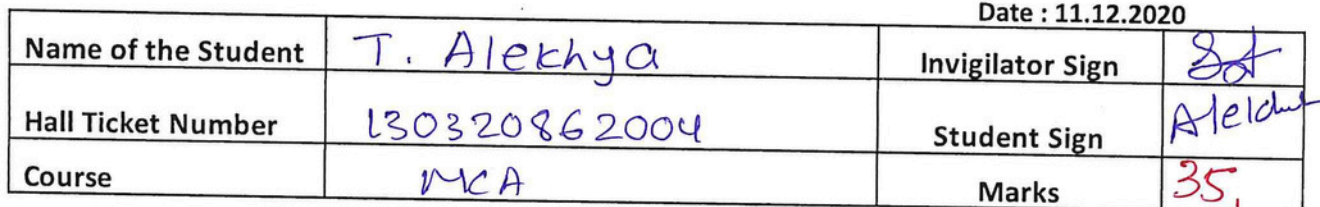 Date : 11.12.2020
Name of the Student T. Alekhya Invigilator Sign
Hall Ticket Number 130320862004 Student Sign
Course MCA Marks 35